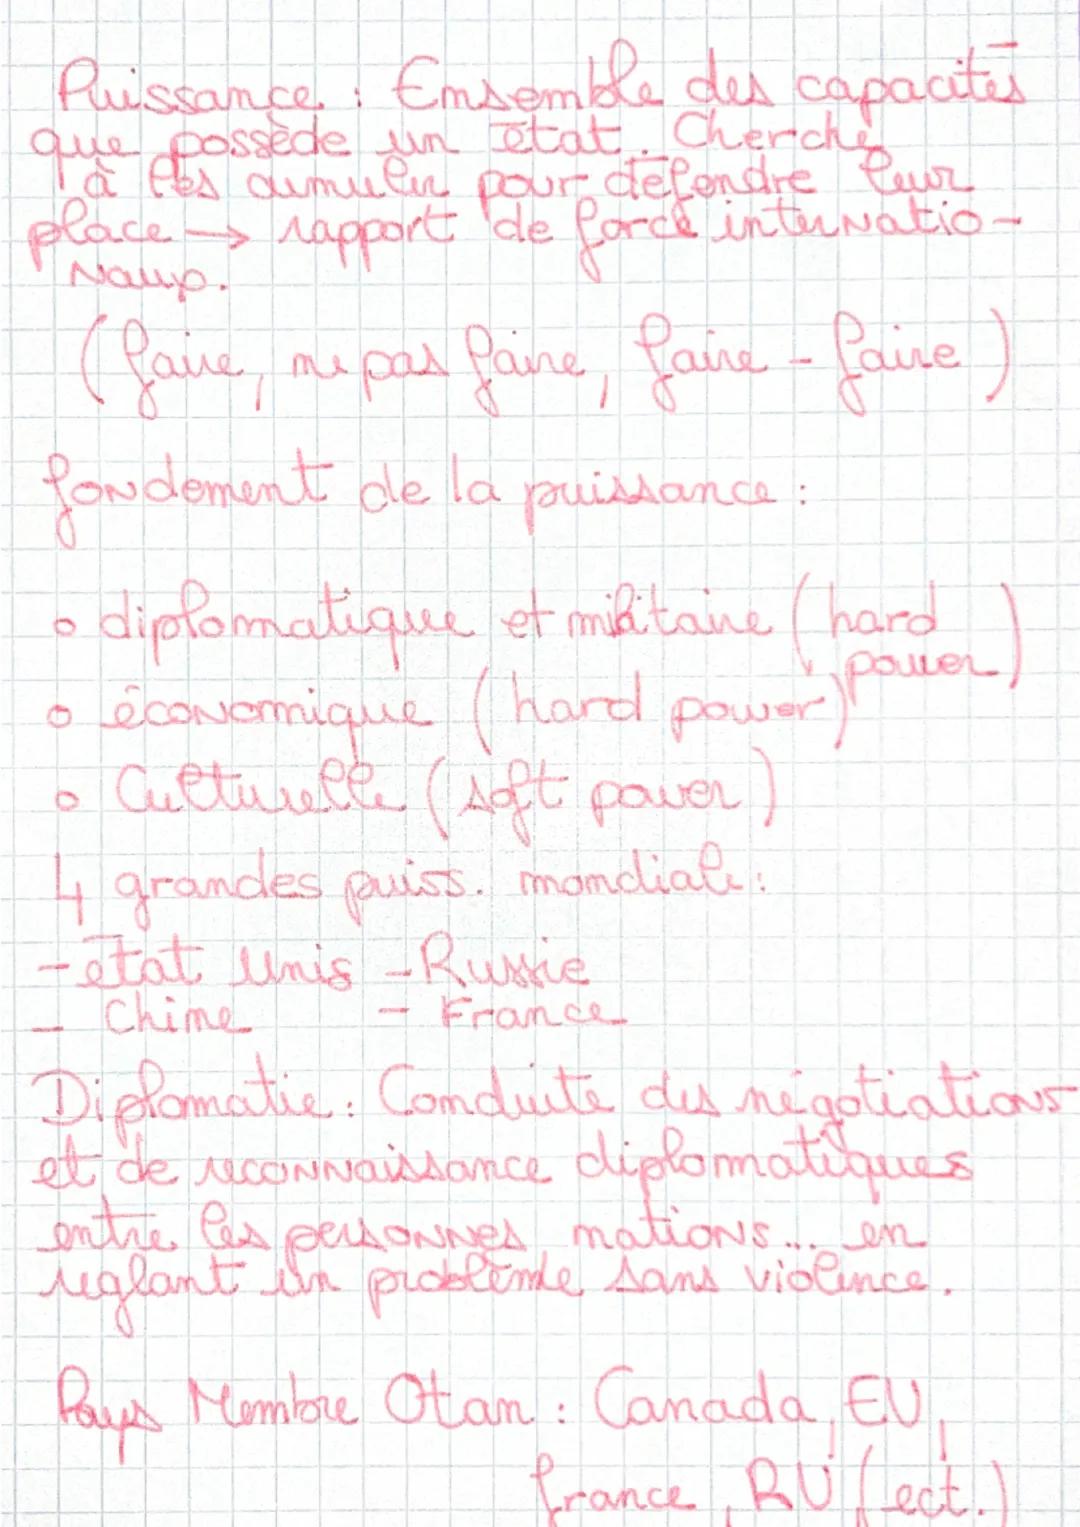 Puissance : Ensemble des capacités
que possède un état. Cherche
à les cumuler pour défendre leur
place → rapport de force internatio-
naux.
(faire, ne pas faire, faire - faire)
fondement de la puissance :
o diplomatique et militaire (hard
power)
o économique (hard power)
o Culturelle (soft power)
4 grandes puiss. mondiale :
- état unis - Russie
- Chine - France
Diplomatie : Conduite des négotiations
et de reconnaissance diplomatiques
entre les personnes nations... en
reglant un problème sans violence.
Pays Membre Otan : Canada, EU,
france, RU (ect.)